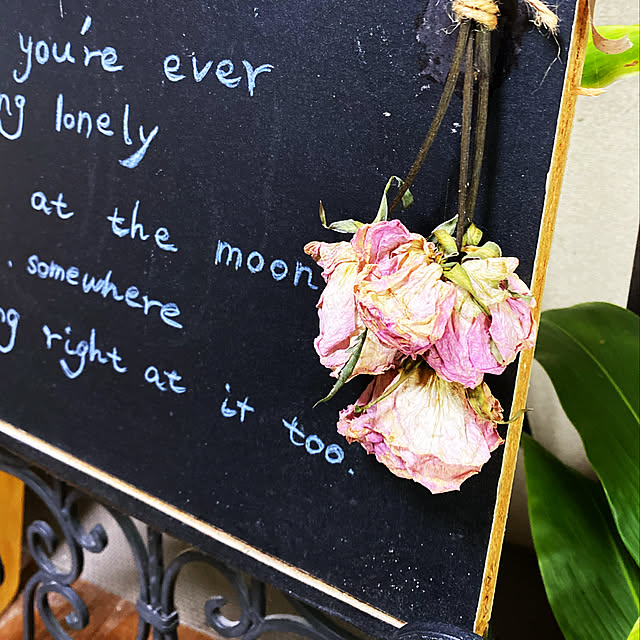 you're ever
ng lonely
at the moon
. somewhere
ng right at it too.